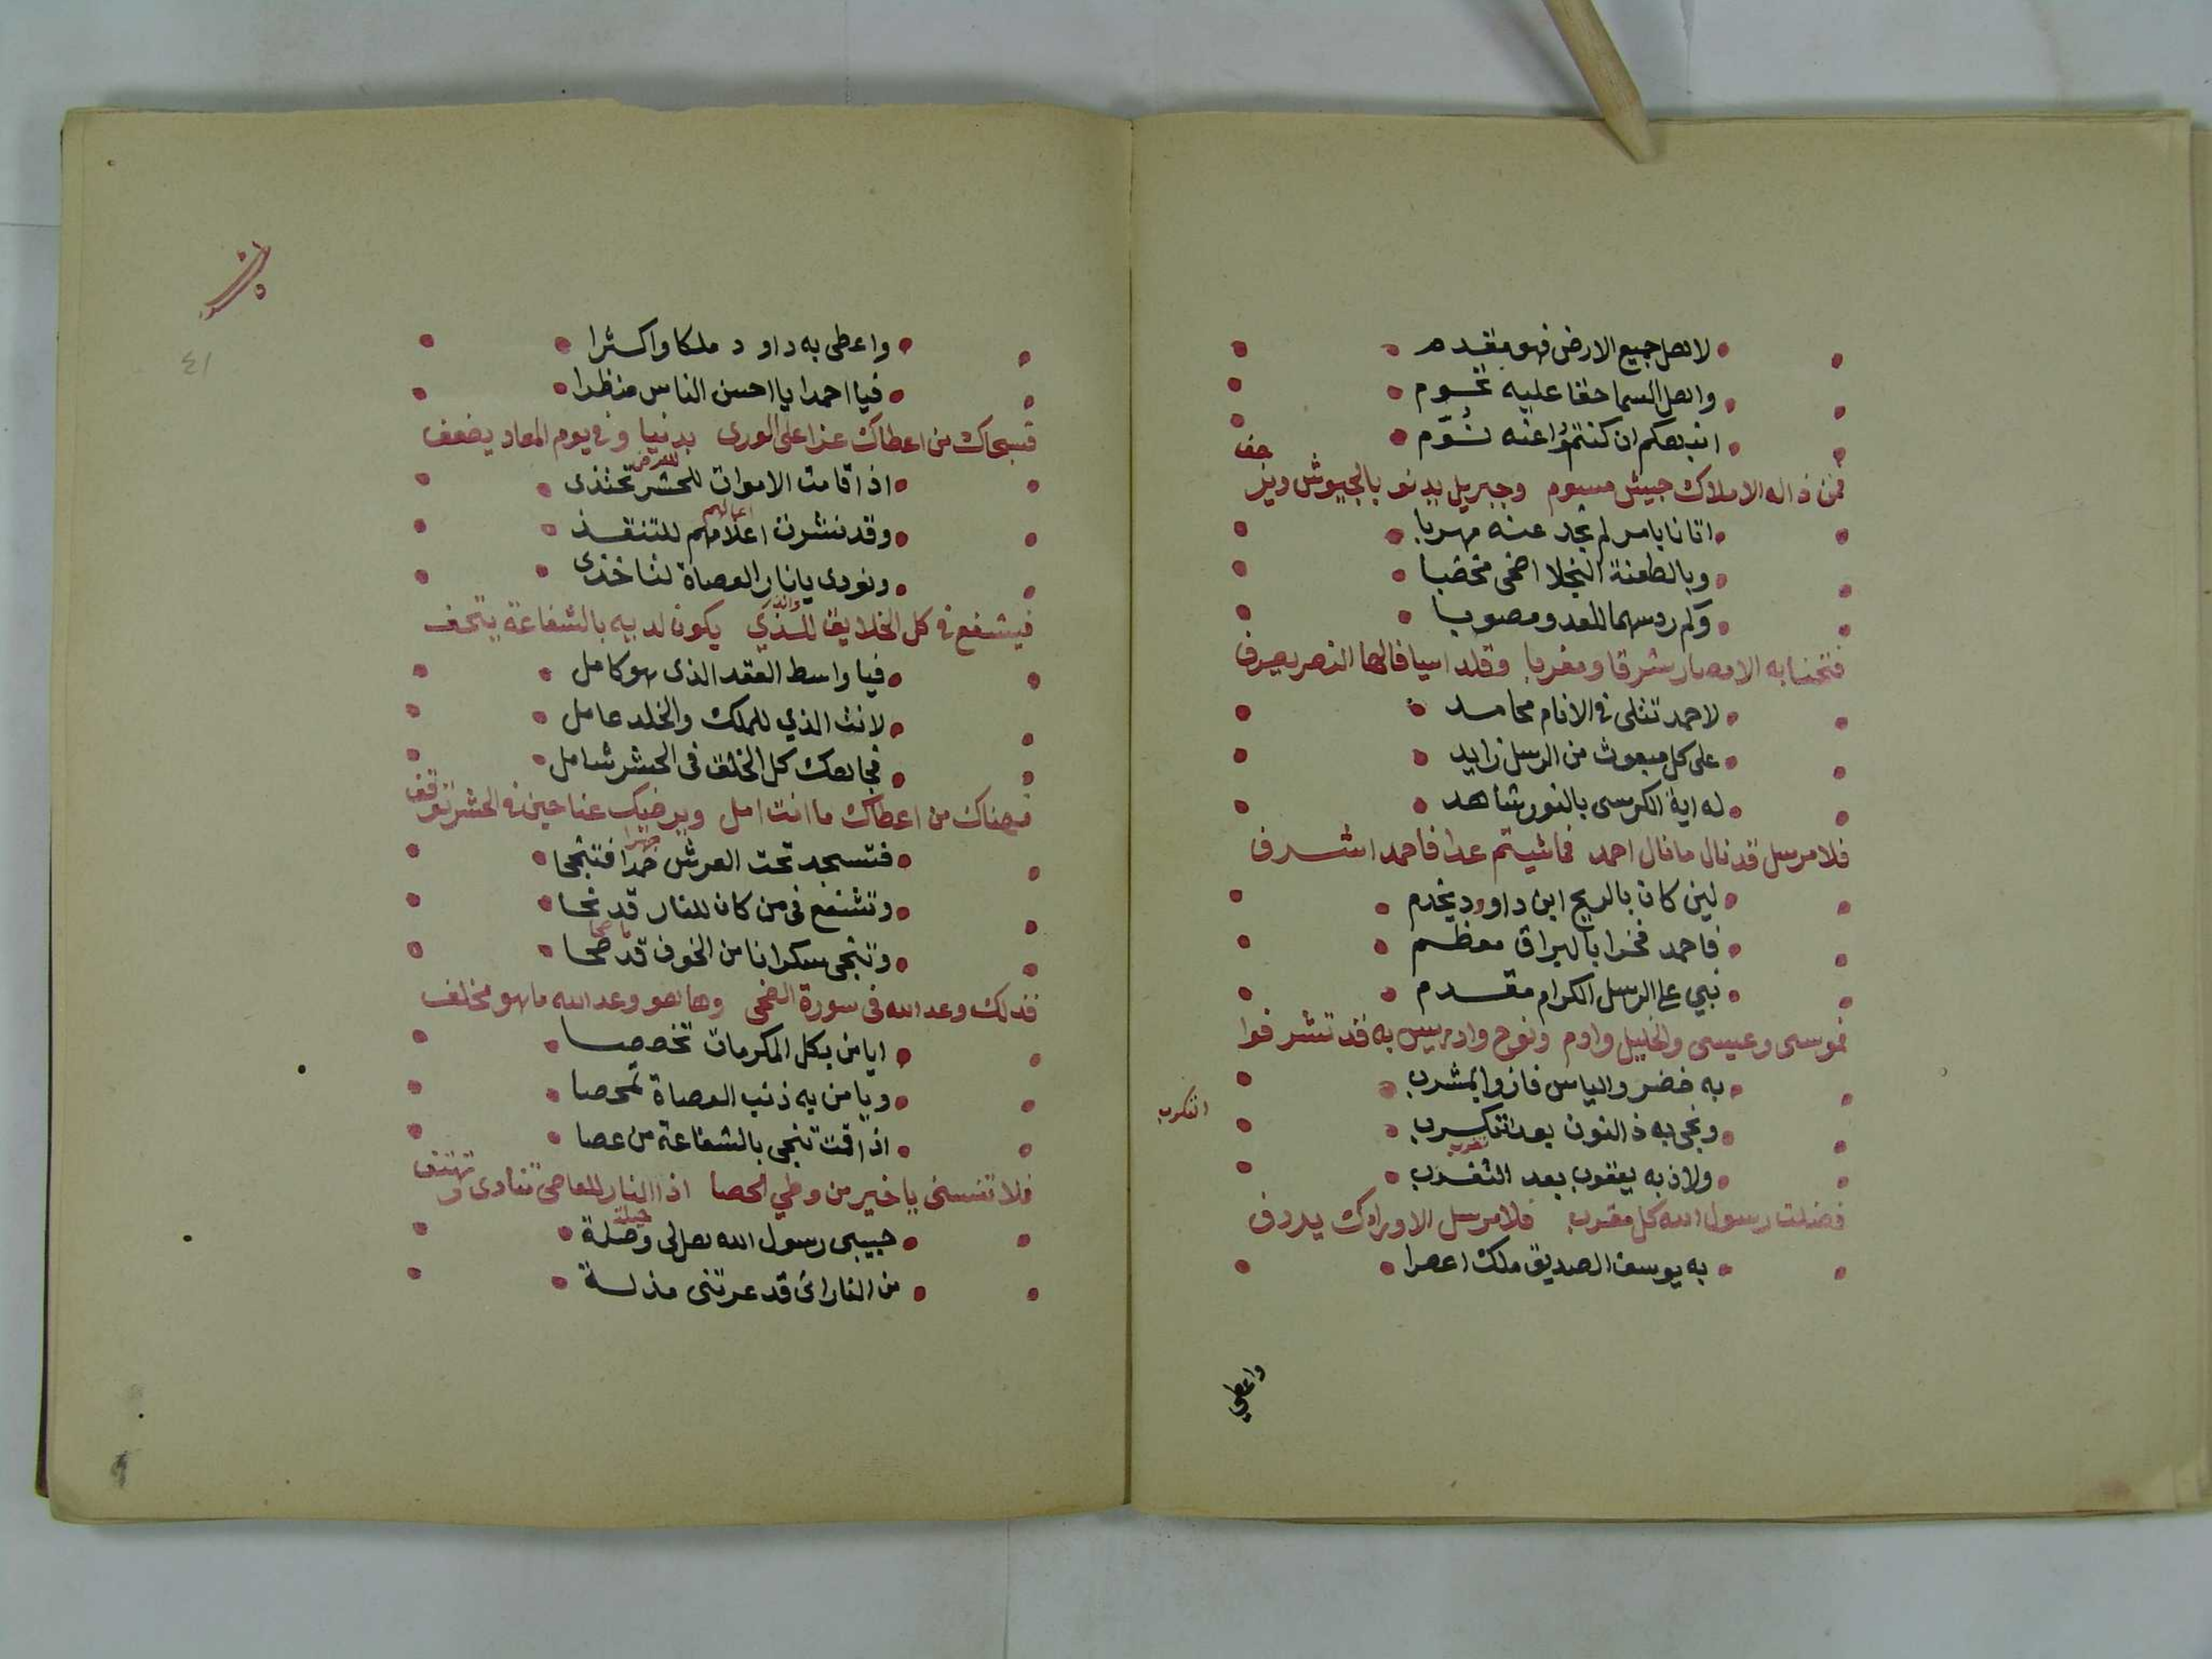 لاهل جميع الارض فهو مقدم
واهل السما حقا عليه تحوم
انبهكم ان كنتموا عنه نوّم
فمن ذا له الاملاك جيش مسوم وجبريل يدنو بالجيوش ويزحف
اتانا بامر لم نجد عنه مهربا
وبالطعنة النجلا اضحى مخضبا
وكم رد سهما للعدو مصوبا
فتحنا به الامصار شرقا ومغربا وقلد اسيافا لها النصر يصرف
لاحمد تتلى في الانام محامد
على كل مبعوث من الرسل زايد
له اية الكرسى بالنور شاهد
فلا مرسل قد نال ما نال احمد فما شيتم عدا فاحمد اشرف
لين كان بالريح ابن داوود يخدم
فاحمد فخرا بالبراق معظم
نبي على الرسل الكرام مقدم
فموسى وعيسى والخليل وادم ونوح وادريس به قد تشرفوا
به خضر والياس فازوا بمشرب
ونجى به ذا النون بعد التكرب
التكرب
ولاذ به يعقوب بعد التغرب
فضلت رسول الله كل مقرب فلا مرسل الا وراك يردف
به يوسف الصديق ملك اعصرا
واعطي
٤١
واعطى به داود ملكا واكثرا
فيا احمدا يا احسن الناس منظرا
فسبحاك من اعطاك عزا على الورى بدنيا وفي يوم المعاد يضعف
اذا قامت الاموات للحشر تحتذى
للعرض
وقد نشرت اعلامهم للتنقذ
اعمالهم
ونودى يا نار العصاة لنا خذى
فيشفع في كل الخلايق للذي يكون لديه بالشفاعة يتحف
فيا واسط العقد الذى هو كامل
لانت الذي للملك والخلد عامل
فجاهك كل الخلق فى الحشر شامل
فهناك من اعطاك ما انت امل ويرضيك عنا حين في الحشر توقف
فتسجد تحت العرش حمدا فتنجى
وتشفع فى من كان للنار قد نحا
وتنجى سكرانا من الخوف قد صحا
فذلك وعد الله فى سورة الضحى وها هو وعد الله ما هو مخلف
ايا من بكل المكرمات تخصصا
ويا من به ذنب العصاة تمحصا
اذا قمت تنجى بالشفاعة من عصا
فلا تنسنى يا خير من وطي الحصا اذا النار للعاصى تنادى وتهتف
حبيبى رسول الله هل لى وصلة
حيلة
من النار انى قد عرتنى مذلة